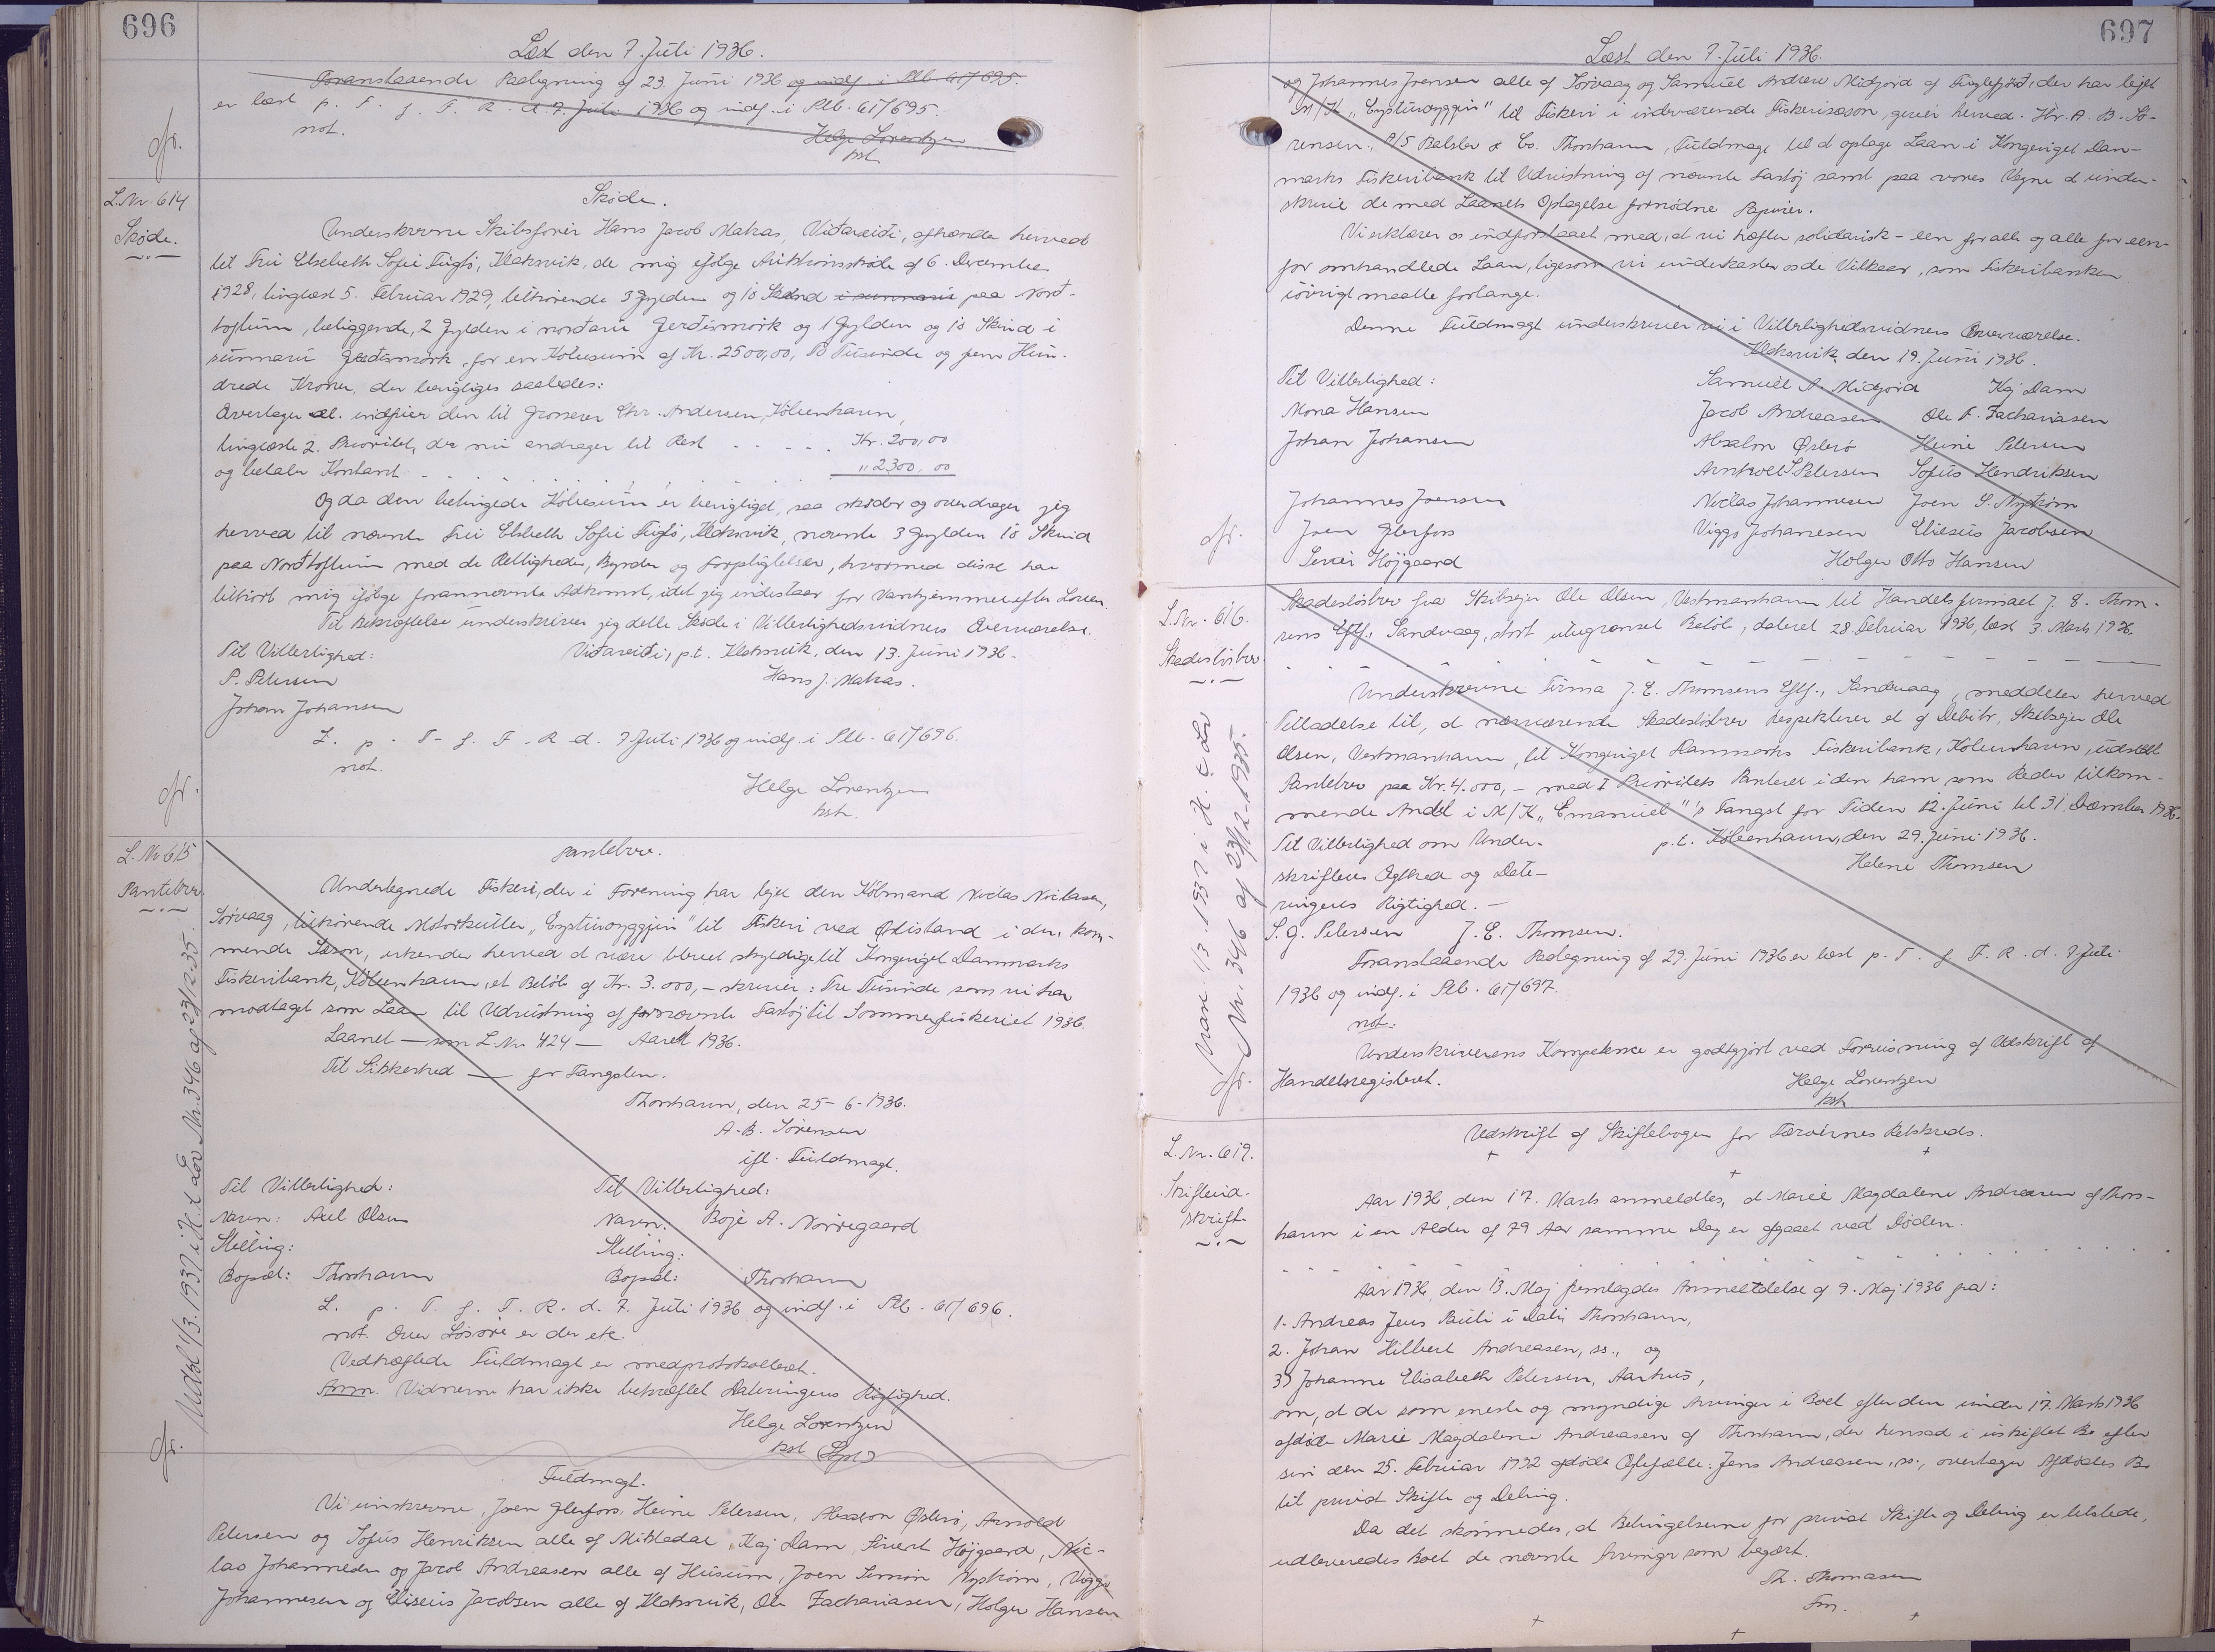 696
Læst den 7. Juli 1936.
Foranstaaende Paategning af 23. Juni 1936 og indf. i Plb. 61/695.
er læst p. T. f. F. R. d. 7. Juli 1936 og indf. i Plb. 61/695.
not.
Helge Lorentzen
kst.
L.Nr. 614
Skøde.
Skøde.
Underskrevne Skibsfører Hans Jacob Matras, Viðareiði, afhænder herved
til Fru Elsebeth Sofie Fuglø, Klaksvik, de mig ifølge Auktionsskøde af 6. December
1928, tinglæst 5. Februar 1929, tilhørende 3 Gylden og 10 Skind i sunnaru paa Norð-
toftum, beliggende, 2 Gylden i norðaru Gerðismørk og 1 Gylden og 10 Skind i
sunnaru Gerðismørk, for en Købesum af Kr. 2500,00, To Tusinde og fem Hun-
drede Kroner, der berigtiges saaledes:
Overtager og indfrier den til Grosserer Chr. Andersen, København,
tinglæste 2. Prioritet, der nu andrager til Rest . . . . Kr. 200,00
og betaler Kontant . . . . . . . . . . " 2300,00
Og da den betingede Købesum er berigtiget, saa skøder og overdrager jeg
herved til nævnte Fru Elsbeth Sofie Fuglø, Klaksvik, nævnte 3 Gylden 10 Skind
paa Norðtoftum med de Rettigheder, Byrder og Forpligtelser, hvormed disse har
tilhørt mig ifølge forannævnte Adkomst, idet jeg indestaar for Vanhjemmel efter Loven.
Til Bekræftelse underskriver jeg dette Skøde i Vitterlighedsvidners Overværelse.
Til Vitterlighed:
Viðareiði, p.t. Klaksvik, den 13. Juni 1936.
P. Petersen
Hans J. Matras.
Johan Johansen
L. p. T. f. F. R. d. 7 Juli 1936 og indf. i Plb. 61/696.
not.
Helge Lorentzen
kst.
L.Nr 615
Pantebrev
Udsl 1/3. 1937 i H. t. Lov Nr. 346 af 23/12-35.
Pantebrev.
Undertegnede Fiskere, der i Forening har lejet den Købmand Niclas Niclasen,
Sørvaag, tilhørende Motorkutter "Eysturoyggjin" til Fiskeri ved Grønland i den kom-
mende Sæson, erkender herved at være blevet skyldige til Kongeriget Danmarks
Fiskeribank, København, et Beløb af Kr. 3.000,- skriver: Tre Tusinde som vi har
modtaget som Laan til Udrustning af fornævnte Fartøj til Sommerfiskeriet 1936.
Laanet — som L.Nr 424 — Aaret 1936.
Til Sikkerhed — for Fangsten.
Thorshavn, den 25-6-1936.
A. B. Sørensen
ifl. Fuldmagt.
Til Vitterlighed: Til Vitterlighed:
Navn: Axel Olsen Navn: Boje A. Nørregaard
Stilling: Stilling:
Bopæl: Thorshavn Bopæl: Thorshavn
L. p. T. f. F. R. d. 7. Juli 1936 og indf. i Plb. 61/696.
not. Over Løsøre er der etc.
Vedhæftede Fuldmagt er medprotokolleret.
Anm. Vidnerne har ikke bekræftet Dateringens Rigtighed.
Helge Lorentzen
kst.
Fuldmagt.
Vi underskrevne, Joen Glerfoss, Heine Petersen, Absalon Østerø, Arnold
Petersen og Sofus Henriksen alle af Mikladal, Kaj Dam, Sivert Højgaard, Nic-
las Johannesen og Jacob Andreasen alle af Husum, Joen Simon Nystrøm, Viggo
Johannesen og Eliseus Jacobsen alle af Klaksvik, Ole Zachariasen, Holger Hansen
697
Læst den 7. Juli 1936.
og Johannes Joensen alle af Sørvaag og Samuel Andrew Midjord af Fuglefjord, der har lejet
M/K "Eysturoyggjin" til Fiskeri i indeværende Fiskerisæson, giver herved Hr. A. B. Sø-
rensen, A/S Balslev & Co. Thorshavn, Fuldmagt til at optage Laan i Kongeriget Dan-
marks Fiskeribank til Udrustning af nævnte Fartøj samt paa vores Vegne at under-
skrive de med Laanets Optagelse fornødne Papirer.
Vi erklærer os indforstaaet med, at vi hæfter solidarisk - een for alle og alle for een -
for omhandlede Laan, ligesom vi underkaster os de Vilkaar, som Fiskeribanken
iøvrigt maatte forlange.
Denne Fuldmagt underskriver vi i Vitterlighedsvidners Overværelse.
Klaksvik, den 19. Juni 1936.
Til Vitterlighed: Samuel A. Midjord Kaj Dam
Mona Hansen Jacob Andreasen Ole F. Zachariasen
Johan Johansen Absalon Østerø Heine Petersen
Arnhold S. Petersen Sofus Hendriksen
Johannes Joensen Niclas Johannesen Joen S. Nystrøm
Joen Glerfoss Viggo Johanesen Eliesus Jacobsen
Siver Højgaard Holger Otto Hansen
L.Nr. 616.
Skadesløsbrev
Skadesløsbrev fra Skibsejer Ole Olsen, Vestmanhavn til Handelsfirmaet J. E. Thom-
sens Eftf., Sandvaag, stort ubegrænset Beløb, dateret 28. Februar 1936, læst 3. Marts 1936.
Underskrevne Firma J. E. Thomsens Eftf., Sandvaag, meddeler herved
Tilladelse til, at nærværende Skadesløsbrev respekterer et af Debitor, Skibsejer Ole
Olsen, Vestmanhavn, til Kongeriget Danmarks Fiskeribank, København, udstedt
Pantebrev paa Kr. 4.000,- med I Prioritets Panteret i den ham som Reder tilkom-
mende Andel i M/K "Emanuel"'s Fangst for Tiden 12. Juni til 31 December 1936.
Til Vitterlighed om Under-
p.t. København, den 29. Juni 1936.
skriftens Ægthed og Date-
Helene Thomsen
ringens Rigtighed. -
S. J. Petersen J. E. Thomsen.
Foranstaaende Paategning af 29. Juni 1936 er læst p. T. f. F. R. d. 7 Juli
1936 og indf. i Plb. 61/697.
not:
Underskriverens Kompetence er godtgjort ved Forevisning af Udskrift af
Handelsregisteret.
Helge Lorentzen
kst.
1/3. 1937 i H. t. Lov
Nr. 346 af 23/12-1935.
L.Nr. 619.
Skifteud-
skrift
Udskrift af Skiftebogen for Færøernes Retskreds.
Aar 1936, den 17. Marts anmeldtes, at Marie Magdalene Andreasen af Thors-
havn i en Alder af 79 Aar samme Dag er afgaaet ved Døden.
Aar 1936, den 13. Maj fremlagdes Anmeldelse af 9. Maj 1936 fra:
1. Andreas Jens Pauli i Dali, Thorshavn,
2. Johan Hilbert Andreasen, ss., og
3) Johanne Elisabeth Petersen, Aarhus,
om, at de som eneste og myndige Arvinger i Boet efter den under 17. Marts 1936
afdøde Marie Magdalene Andreasen af Thorshavn, der hensad i uskiftet Bo efter
sin den 25. Februar 1932 afdøde Ægtefælle: Jens Andreasen, ss., overtager Afdødes Bo
til privat Skifte og Deling.
Da det skønnedes, at Betingelserne for privat Skifte og Deling er tilstede,
udleveredes Boet de nævnte Arvinger som begært.
Th. Thomassen
fm.